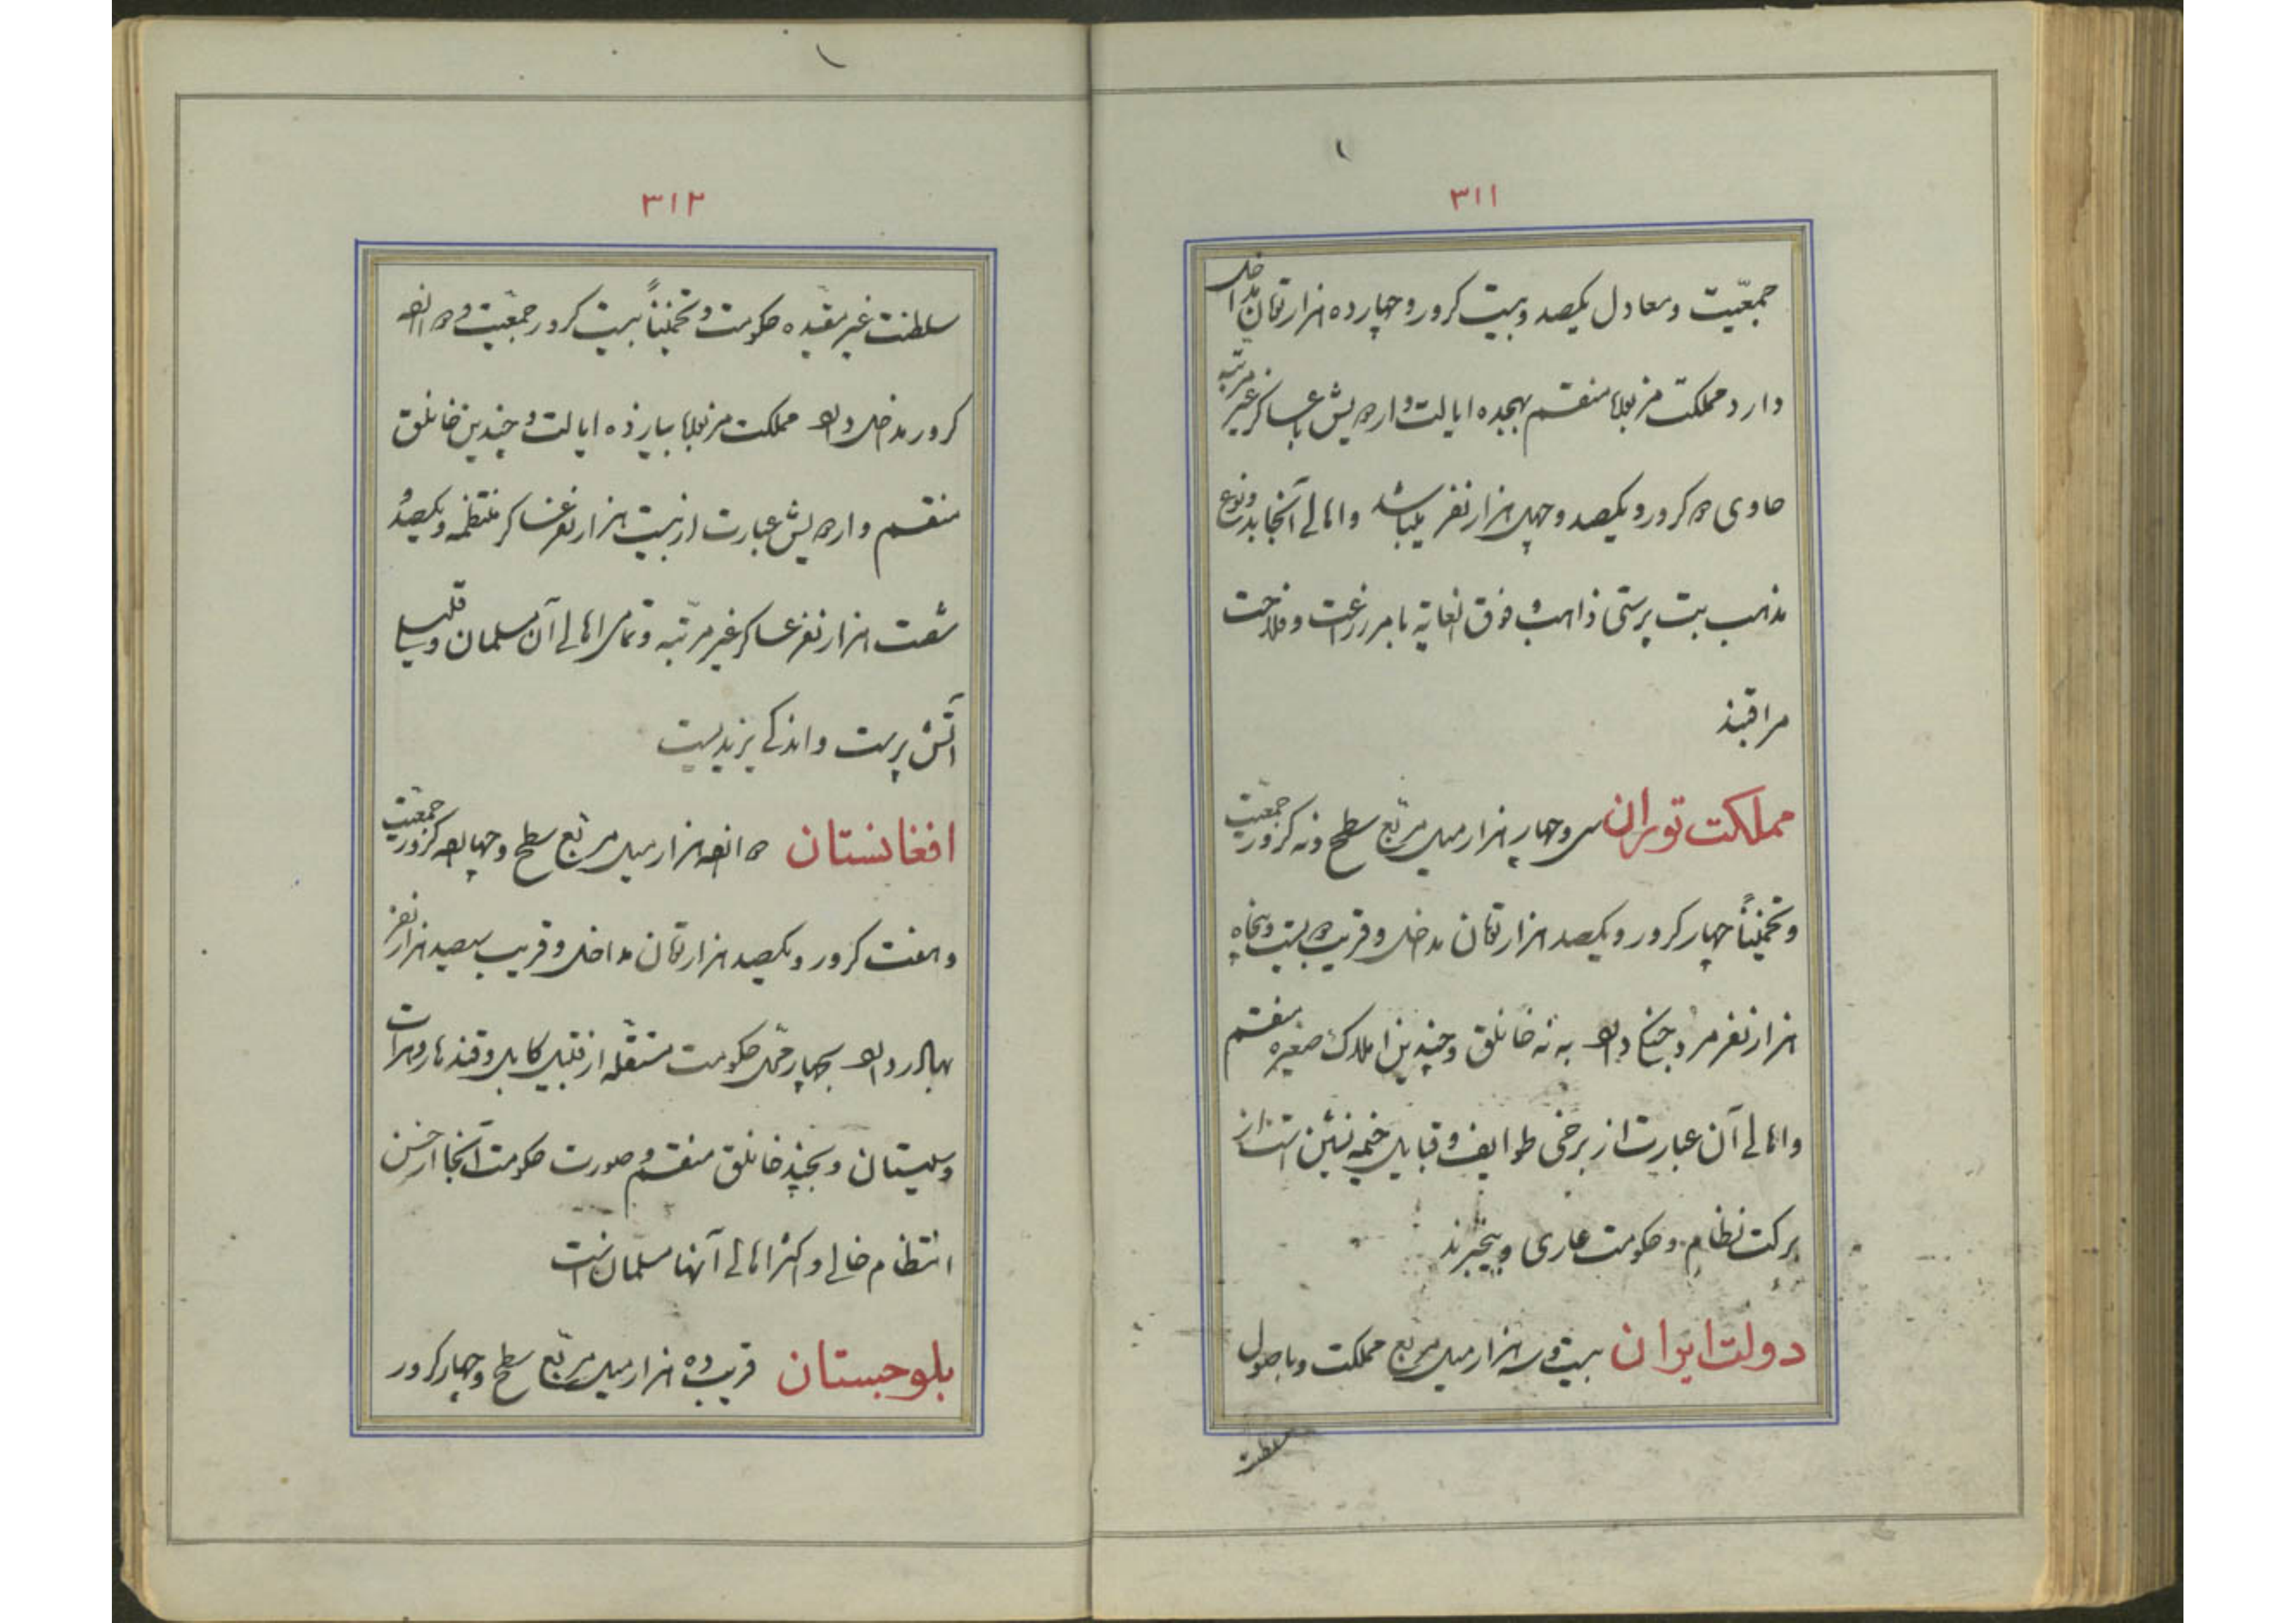 ۳۱۱
جمعیّت و معادل یکصد و بیست کرور و چهارده هزار تومان مداخل
دارد مملکت مزبوره منقسم بهیجده ایالت و اردویش با عساکر غیر مرتبه
حاوی دو کرور و یکصد و چهل هزار نفر میباشد و اهالی آنجا بدو نوع
مذهب بت پرستی ذاهب و فوق الغایه بامر زراعت و فلاحت
مراقبند
مملکت توران سی و چهار هزار میل مربّع سطح و نه کرور جمعیّت
و تخمیناً چهار کرور و یکصد هزار تومان مداخل و قریب دویست و پنجاه
هزار نفر مرد جنگی دارد به نه خانلق و چندین املاک صغیره منقسم
و اهالی آن عبارت از برخی طوایف و قبایل خیمه نشین است از
برکت نظام و حکومت عاری و بیخبرند
دولت ایران بیست و سه هزار میل مربّع مملکت و باصول
سلطنت
۳۱۲
سلطنت غیر مقیّده حکومت و تخمیناً بیست کرور جمعیّت و دوازده
کرور مداخل دارد مملکت مزبوره بیازده ایالت و چندین خانلق
منقسم و اردویش عبارت از بیست هزار نفر عساکر منتظمه و یکصد و
شصت هزار نفر عساکر غیر مرتّبه و تمامی اهالی آن مسلمان و قلیلی
آتش پرست و اندکی یزیدیست
افغانستان دوازده هزار میل مربّع سطح و چهارده کرور جمعیّت
و هفت کرور و یکصد هزار تومان مداخل و قریب سیصد هزار نفر
بهادر دارد بچهار محل حکومت مستقلّه از قبیل کابل و قندهار و هرات
و سیستان و بچند خانلق منقسم و صورت حکومت آنجا از حسن
انتظام خالی و اکثر اهالی آنها مسلمان است
بلوجستان قریب ده هزار میل مربّع سطح و چهار کرور